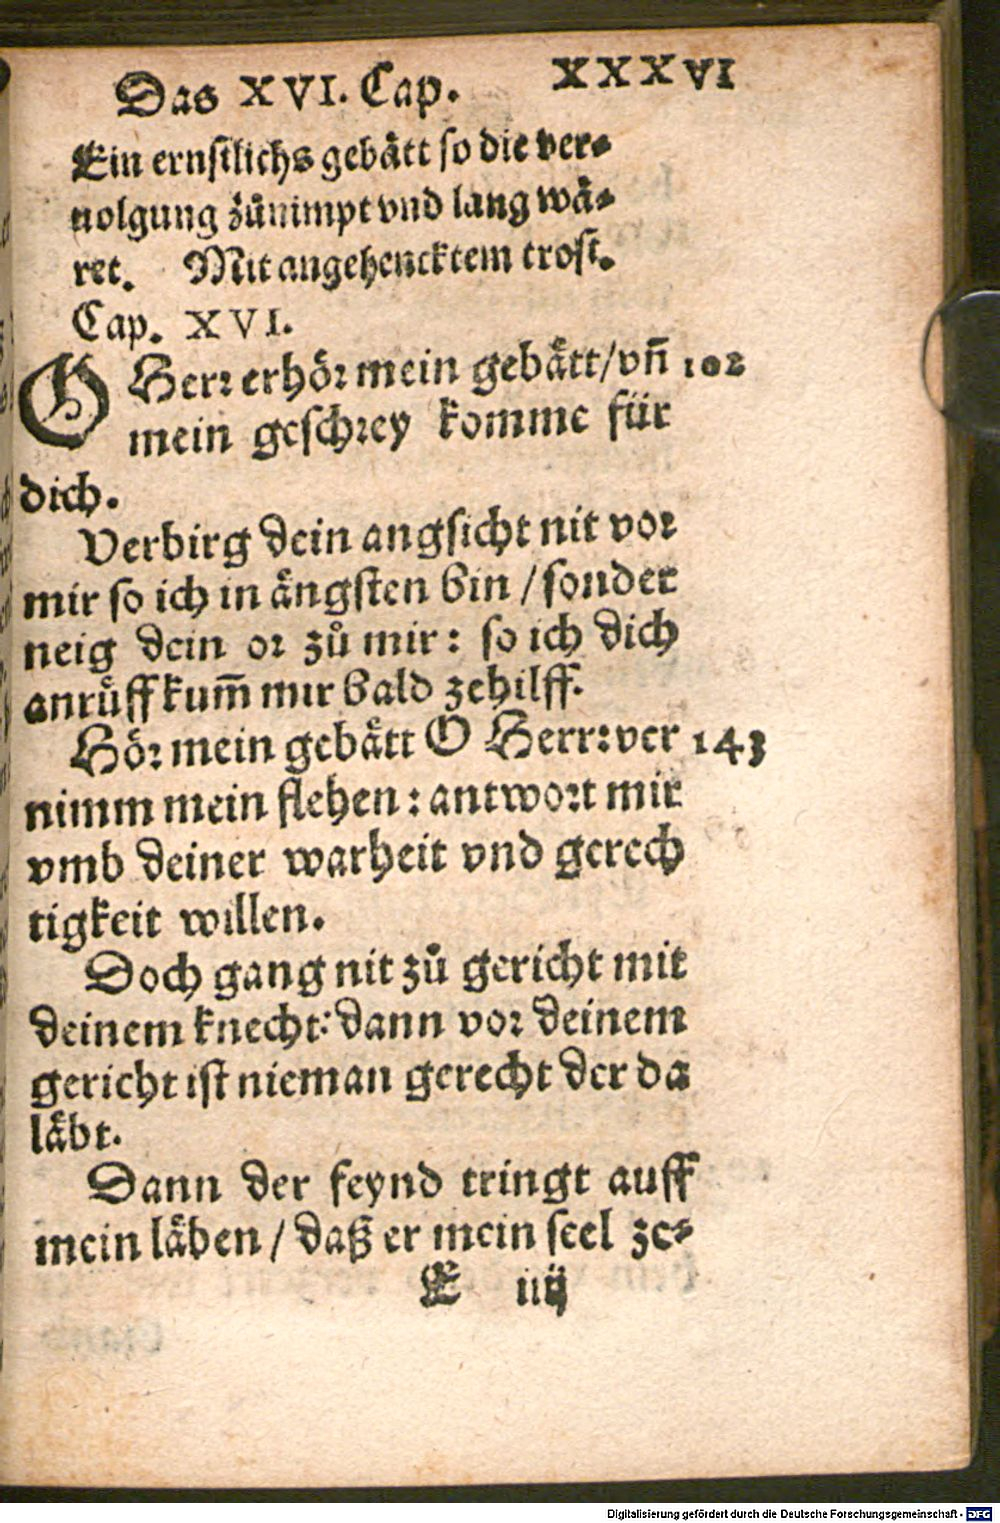 Das XVI. Cap. XXXVI
Ein ernstlichs gebätt so die ver-
uolgung zůnimpt vnd lang wä-
ret. Mit angehencktem trost.
Cap. XVI.
O Herr erhör mein gebätt/vñ 102
mein geschrey komme für
dich.
Verbirg dein angsicht nit vor
mir so ich in ängsten bin / sonder
neig dein or zů mir: so ich dich
anrůff kum̄ mir bald zehilff.
Hör mein gebätt O Herr: ver 143
nimm mein flehen: antwort mir
vmb deiner warheit vnd gerech
tigkeit willen.
Doch gang nit zů gericht mit
deinem knecht: dann vor deinem
gericht ist nieman gerecht der da
läbt.
Dann der feynd tringt auff
mein läben / daß er mein seel ze-
E iiij
Digitalisierung gefördert durch die Deutsche Forschungsgemeinschaft - DFG